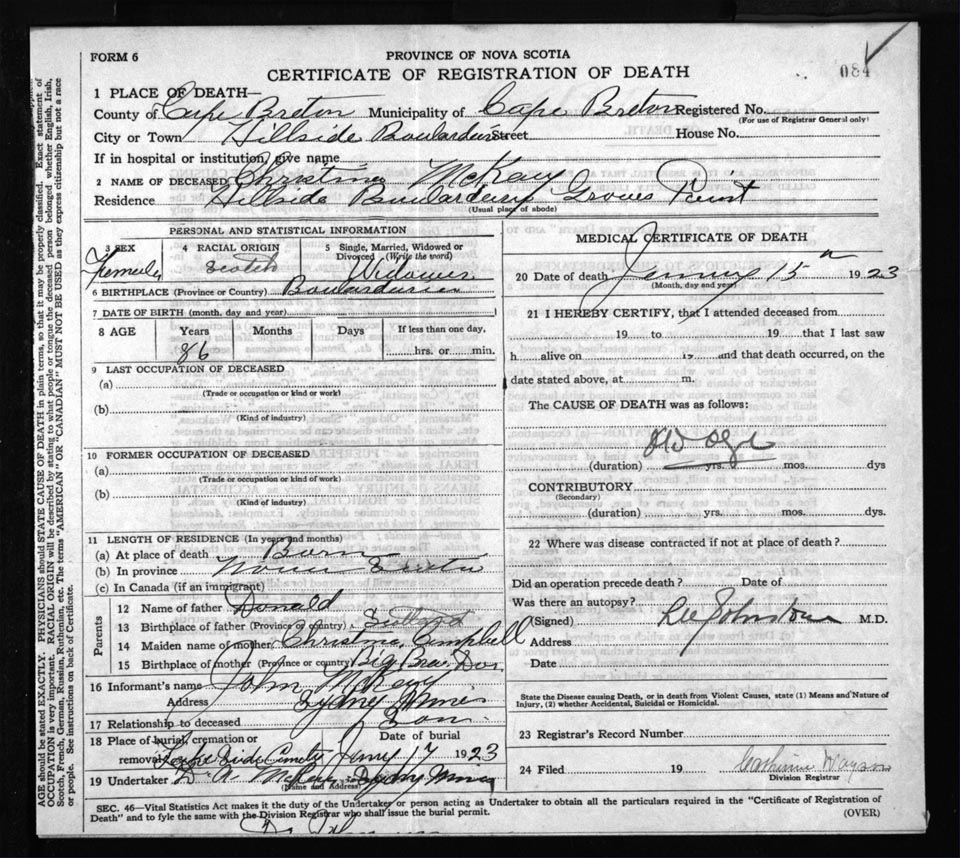 FORM 6
PROVINCE OF NOVA SCOTIA
CERTIFICATE OF REGISTRATION OF DEATH
084
1 PLACE OF DEATH—
County of Cape Breton Municipality of Cape Breton Registered No.
(For use of Registrar General only)
City or Town Hillside Boularderie Street House No.
If in hospital or institution, give name
2 NAME OF DECEASED Christina McKay
Residence Hillside Boularderie Groves Point
(Usual place of abode)
PERSONAL AND STATISTICAL INFORMATION
3 SEX 4 RACIAL ORIGIN 5 Single, Married, Widowed or Divorced (Write the word)
Female Scotch Widower
6 BIRTHPLACE (Province or Country) Boularderie
7 DATE OF BIRTH (month, day and year)
8 AGE Years Months Days If less than one day,
86 hrs. or min.
9 LAST OCCUPATION OF DECEASED
(a)
(Trade or occupation or kind or work)
(b)
(Kind of industry)
10 FORMER OCCUPATION OF DECEASED
(a)
(Trade or occupation or kind of work)
(b)
(Kind of industry)
11 LENGTH OF RESIDENCE (In years and months)
(a) At place of death Born
(b) In province Nova Scotia
(c) In Canada (if an immigrant)
Parents
12 Name of father Donald
13 Birthplace of father (Province or country) Scotland
14 Maiden name of mother Christina Campbell
15 Birthplace of mother (Province or country) Big Bras Dor
16 Informant's name John McKay
Address Sydney Mines
17 Relationship to deceased Son
18 Place of burial, cremation or removal Date of burial
Side 17 1923
19 Undertaker D. A. McKay Sydney Mines
(Name and Address)
MEDICAL CERTIFICATE OF DEATH
20 Date of death 15 1923
(Month, day and year)
21 I HEREBY CERTIFY, that I attended deceased from
19 to 19 that I last saw
h alive on 19 and that death occurred, on the
date stated above, at m.
The CAUSE OF DEATH was as follows:
Old Age
(duration) yrs. mos. dys
CONTRIBUTORY
(Secondary)
(duration) yrs. mos. dys
22 Where was disease contracted if not at place of death?
Did an operation precede death? Date of
Was there an autopsy?
(Signed) Johnstone M.D.
Address
Date
State the Disease causing Death, or in death from Violent Causes, state (1) Means and Nature of
Injury, (2) whether Accidental, Suicidal or Homicidal.
23 Registrar's Record Number
24 Filed 19 Catherine
Division Registrar
SEC. 46—Vital Statistics Act makes it the duty of the Undertaker or person acting as Undertaker to obtain all the particulars required in the "Certificate of Registration of
Death" and to fyle the same with the Division Registrar who shall issue the burial permit. (OVER)
AGE should be stated EXACTLY. PHYSICIANS should STATE CAUSE OF DEATH in plain terms, so that it may be properly classified. Exact statement of
OCCUPATION is very important. RACIAL ORIGIN will be described by stating to what people or tongue the deceased person belonged, whether English, Irish,
Scotch, French, German, Russian, Ruthenian, etc. The terms "AMERICAN" OR "CANADIAN" MUST NOT BE USED as they express citizenship but not a race
or people. See instructions on back of Certificate.